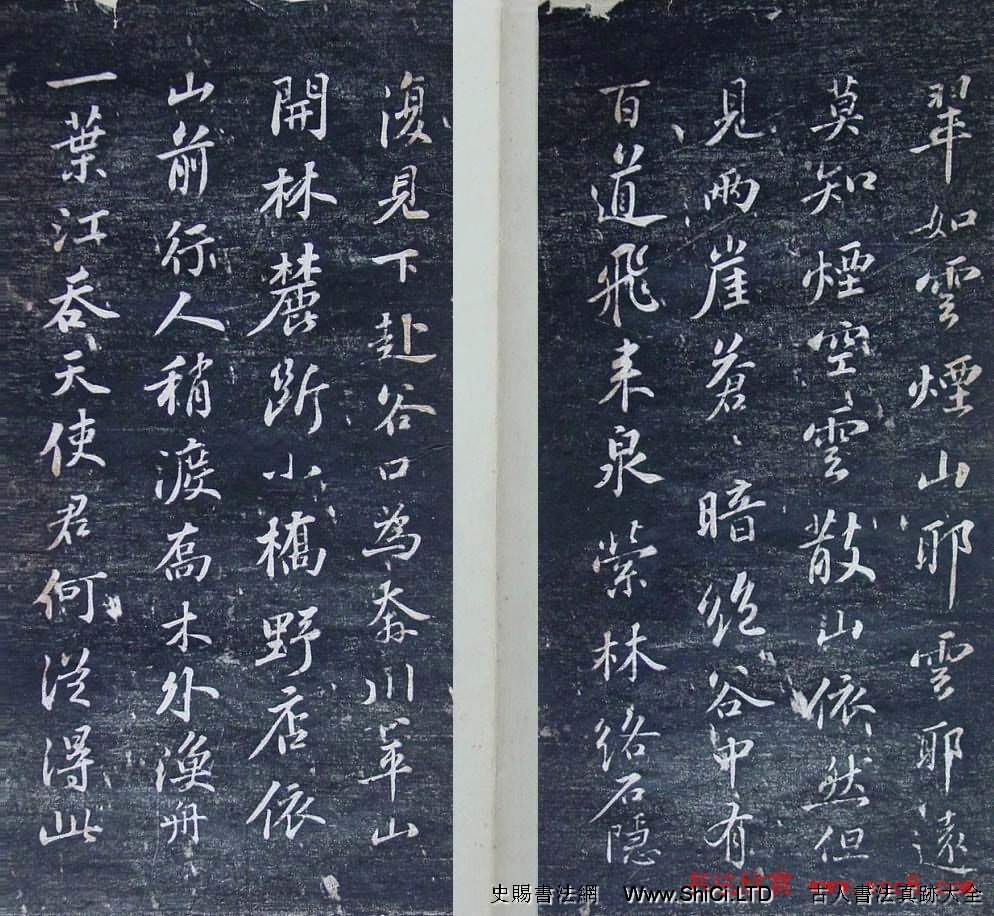 翠如雲煙山耶雲耶遠
莫知煙空雲散山依然但
見兩崖蒼〻暗絕谷中有
百道飛来泉縈林絡石隱
復見下赴谷口為奔川平山
開林麓斷小橋野店依
山前行人稍渡喬木外漁舟
一葉江吞天使君何從得此
史賜書法網 Www.ShiCi.LTD 古人書法真跡大全